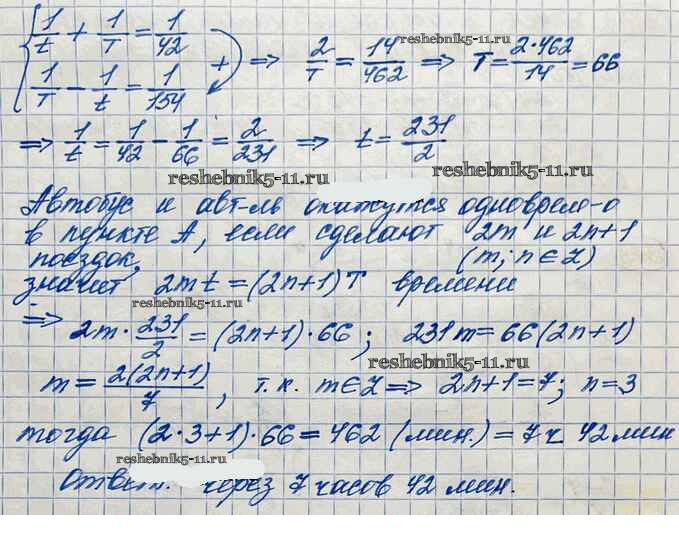 1/t + 1/T = 1/42
reshebnik5-11.ru
1/T − 1/t = 1/154 + ⟹ 2/T = 14/462 ⟹ T = 2·462/14 = 66
⟹ 1/t = 1/42 − 1/66 = 2/231 ⟹ t = 231/2
reshebnik5-11.ru reshebnik5-11.ru
Автобус и авт-ль одноврем-о
в пункте А, если сделают 2m и 2n+1
поездок, (m; n ∈ Z)
значит 2mt = (2n+1)T времени
reshebnik5-11.ru
⟹ 2m · 231/2 = (2n+1)·66; 231m = 66(2n+1)
reshebnik5-11.ru
m = 2(2n+1)/7, т.к. m ∈ Z ⟹ 2n+1=7; n=3
тогда (2·3+1)·66 = 462 (мин.) = 7 ч 42 мин
reshebnik5-11.ru
Ответ: через 7 часов 42 мин.